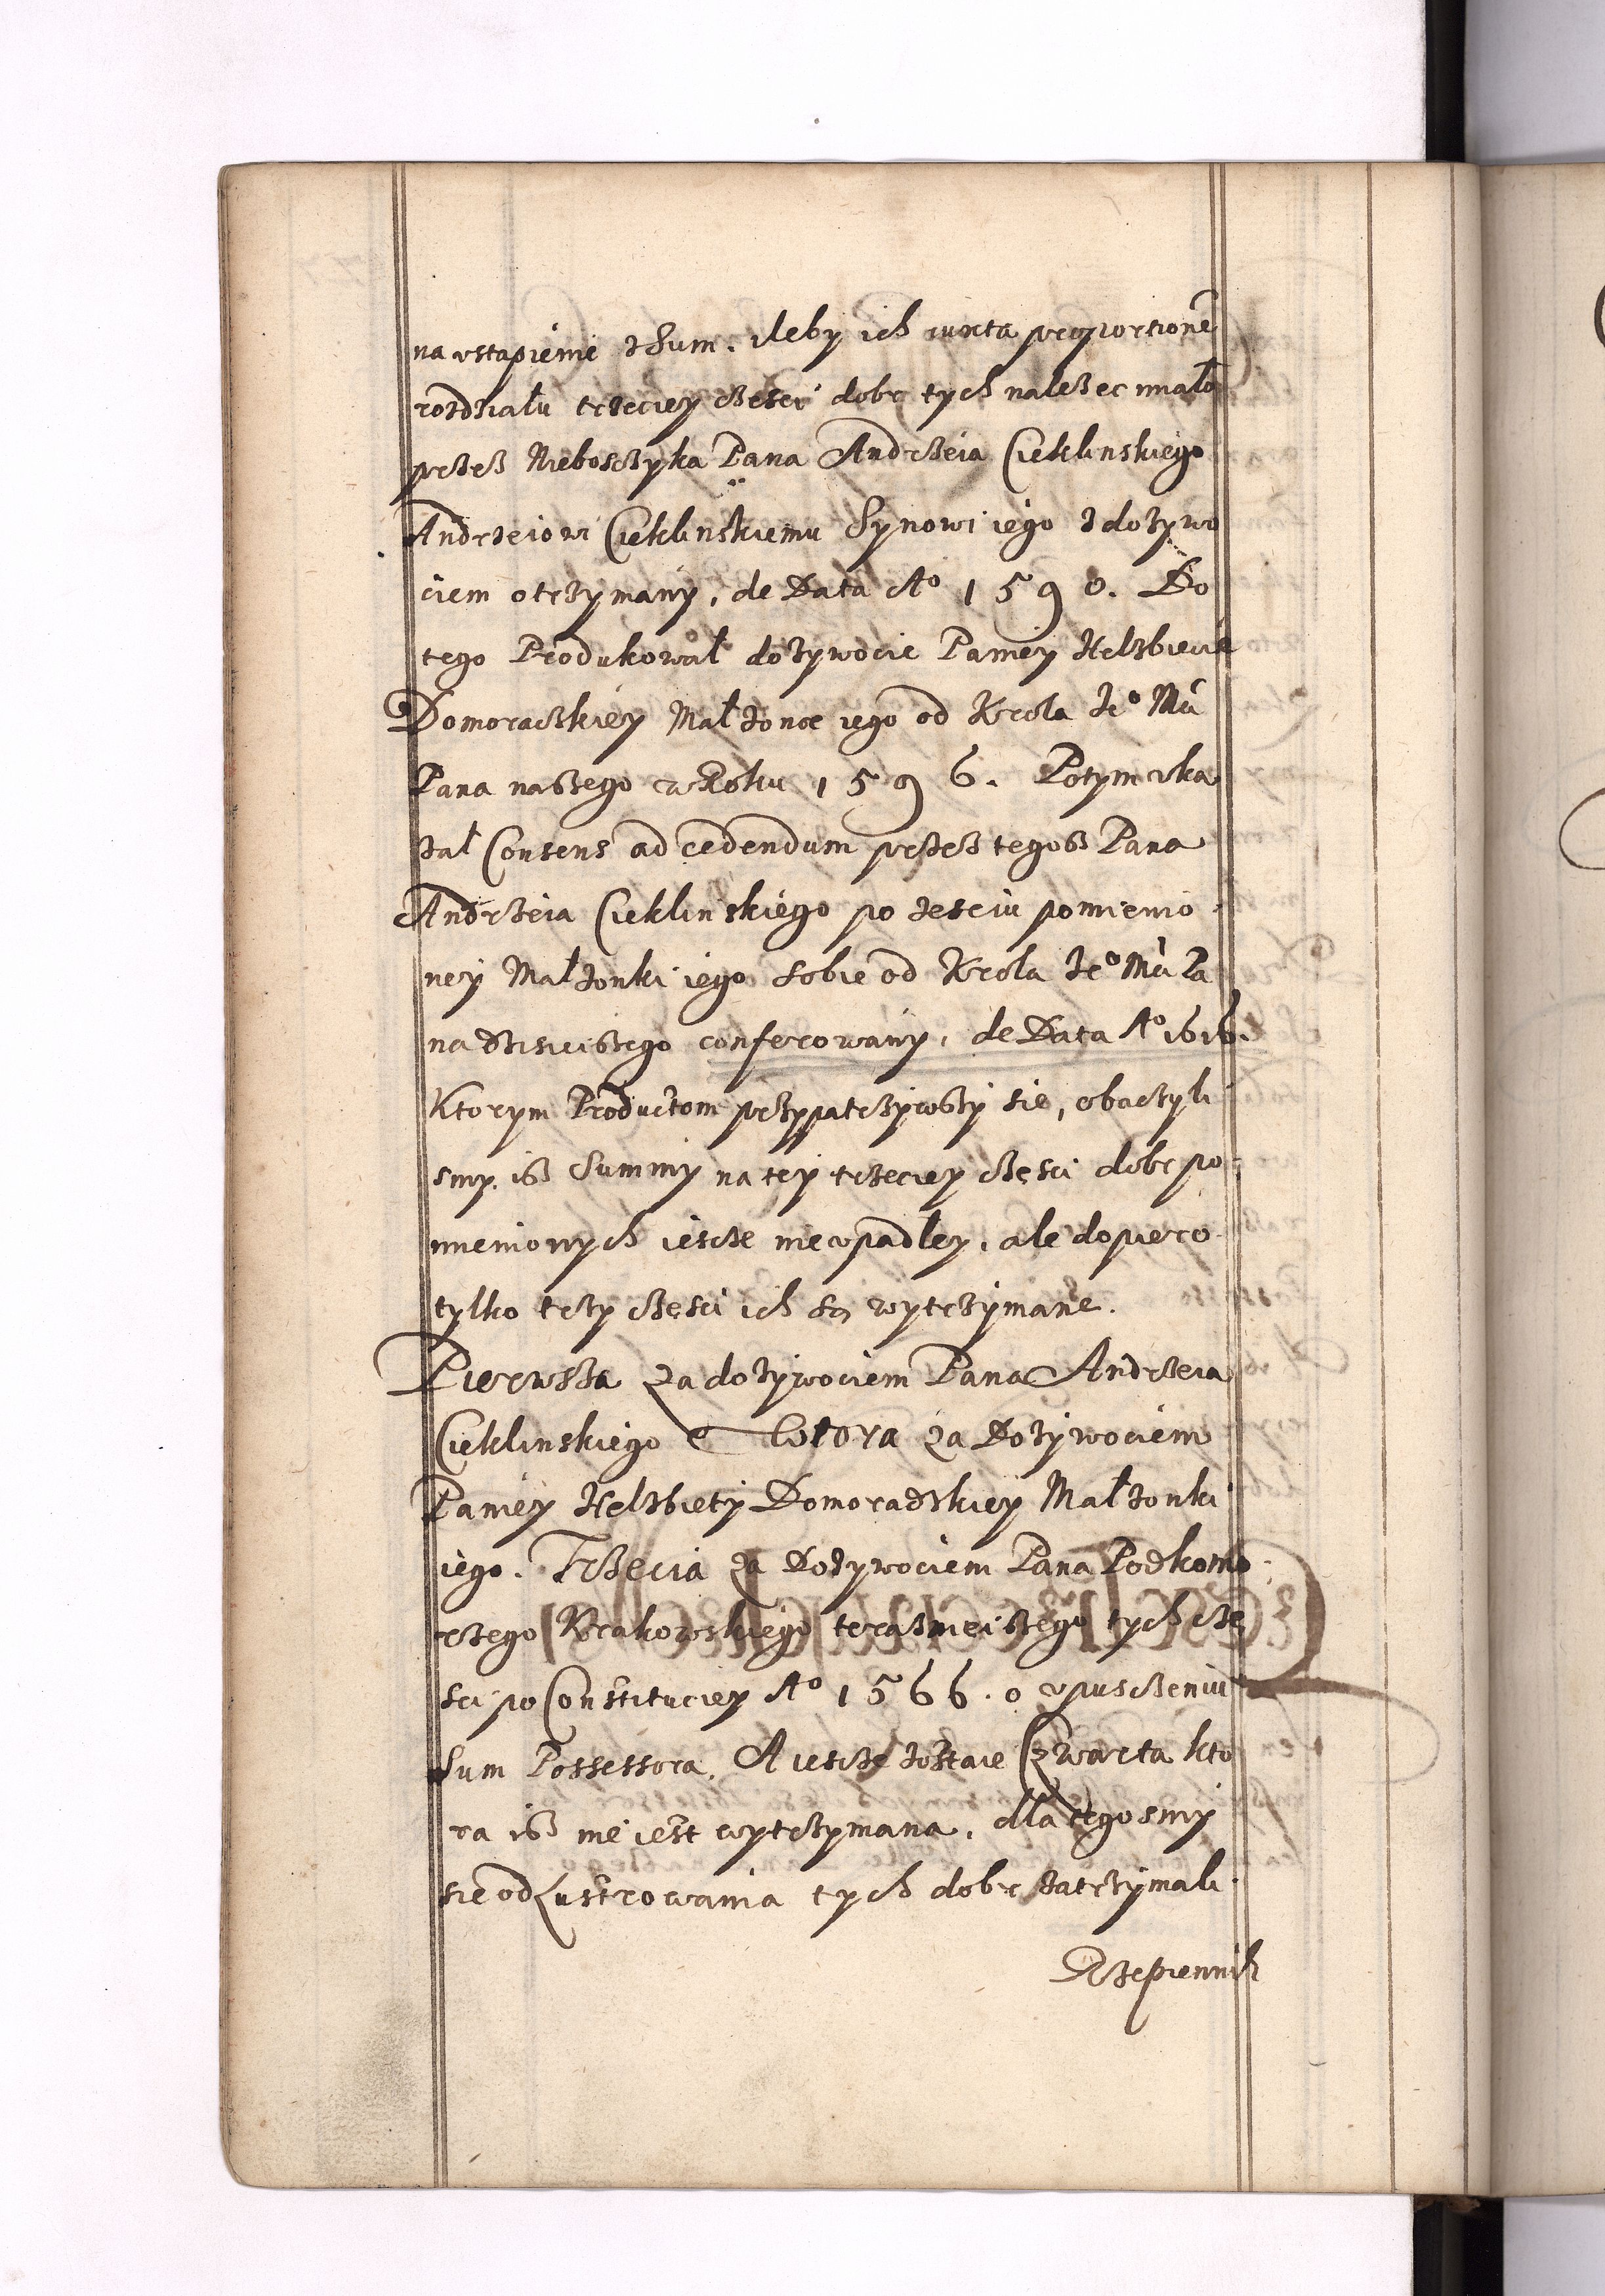 na vstąpienie z Sum. ileby ich iuxta proportionē
rozdziału trzeciey części dobr tych należec miało
przez Nieboszczyka Pana Andrzeia Cieklinskiego
Andrzeiowi Cieklinskiemu Synowi iego z dożywo
ciem otrzymany, de Data Aº 1590. Do
tego Produkował dożywocie Paniey Helzbiecie
Domoradzkiey Małżonce iego od Krola Jeº Mći
Pana naszego w Roku 1596. Potym vka
zał Consens ad cedendum przez tegoż Pana
Andrzeia Cieklinskiego po ześciu pomienio
ney Małżonki iego sobie od Krola Jeº Mći Pa
na dzisieiszego conferowany, de Data Aº 1616.
Ktorym Productom przypatrzywszy sie, obaczyli
smy, iż Summy na tey trzeciey częsci dobr po
mienionych iescze nie vpadley, ale dopiero
tylko trzy częsci ich są wytrzymane.
Pierwsza za dożywociem Pana Andrzeia
Cieklinskiego Wtora za Dożywociem
Paniey Helzbiety Domoradzkiey Małżonki
iego. Trzecia za Dożywociem Pana Podkomo
rzego Krakowskiego teraznieiszego tych czę
sci po Constituciey Aº 1566. o vpusczeniu
Sum Possessora. A iescze zostaie Czwarta kto
ra iż nie iest wytrzymana, dla tego smy
sie od Lustrowania tych dobr zatrzymali.
Rzepiennik